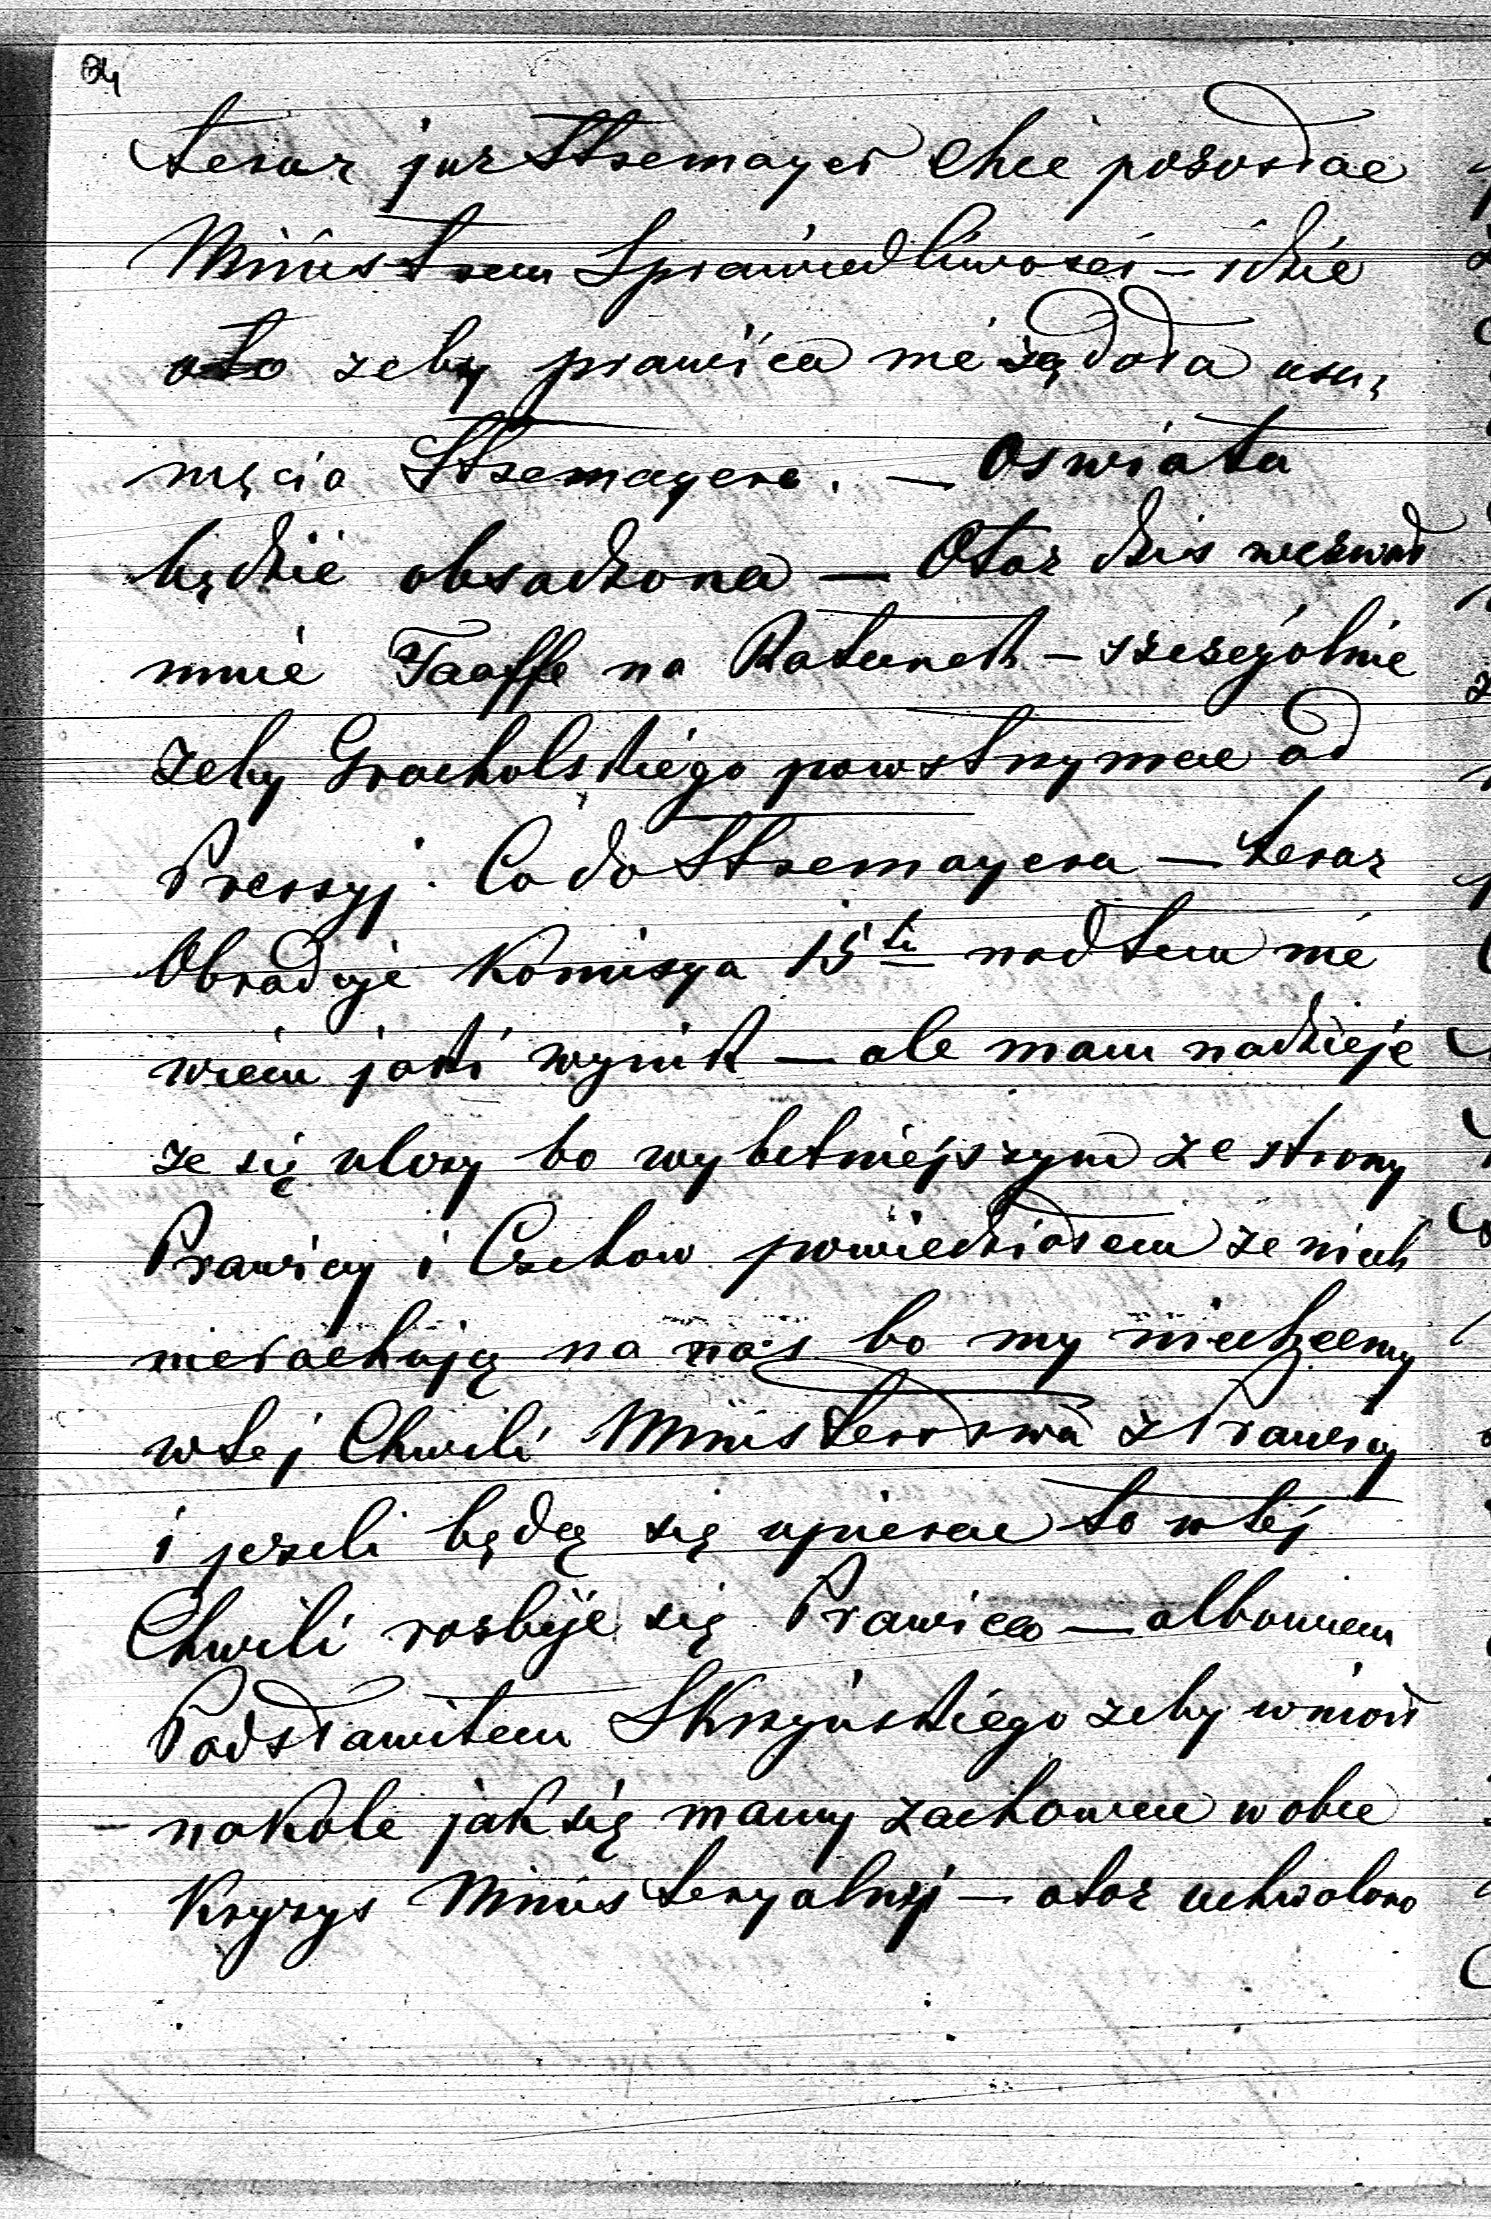 84
teraz juz Stremayer chce pozostac
Ministrem Sprawiedliwosci – idzie
oto zeby prawica nie ządała usu,
nięcia Stremayera. – Oswiata
będzie obsadzona – Otoz dzis wezwał
mnie Taaffe na Ratunek – szczególnie
zeby Grocholskiego powstrzymac od
Pressyj. Co do Stremayera – teraz
Obraduje Komisya 15tu nad tem nie
wiem jaki wynik – ale mam nadzieje
ze się ulozy bo wybitniejszym ze strony
Prawicy i Czechow powiedziałem ze niech
nierachują na nas bo my niechcemy
wtej Chwili Ministerstwa z Prawicy
i jezeli będą się upierac to wtej
Chwili rozbije się Prawica – albowiem
Podstawiłem Skrzyńskiego zeby wniosł
nakole jak się mamy zachowac wobec
Kryzys Ministeryalnej – otoz uchwalono